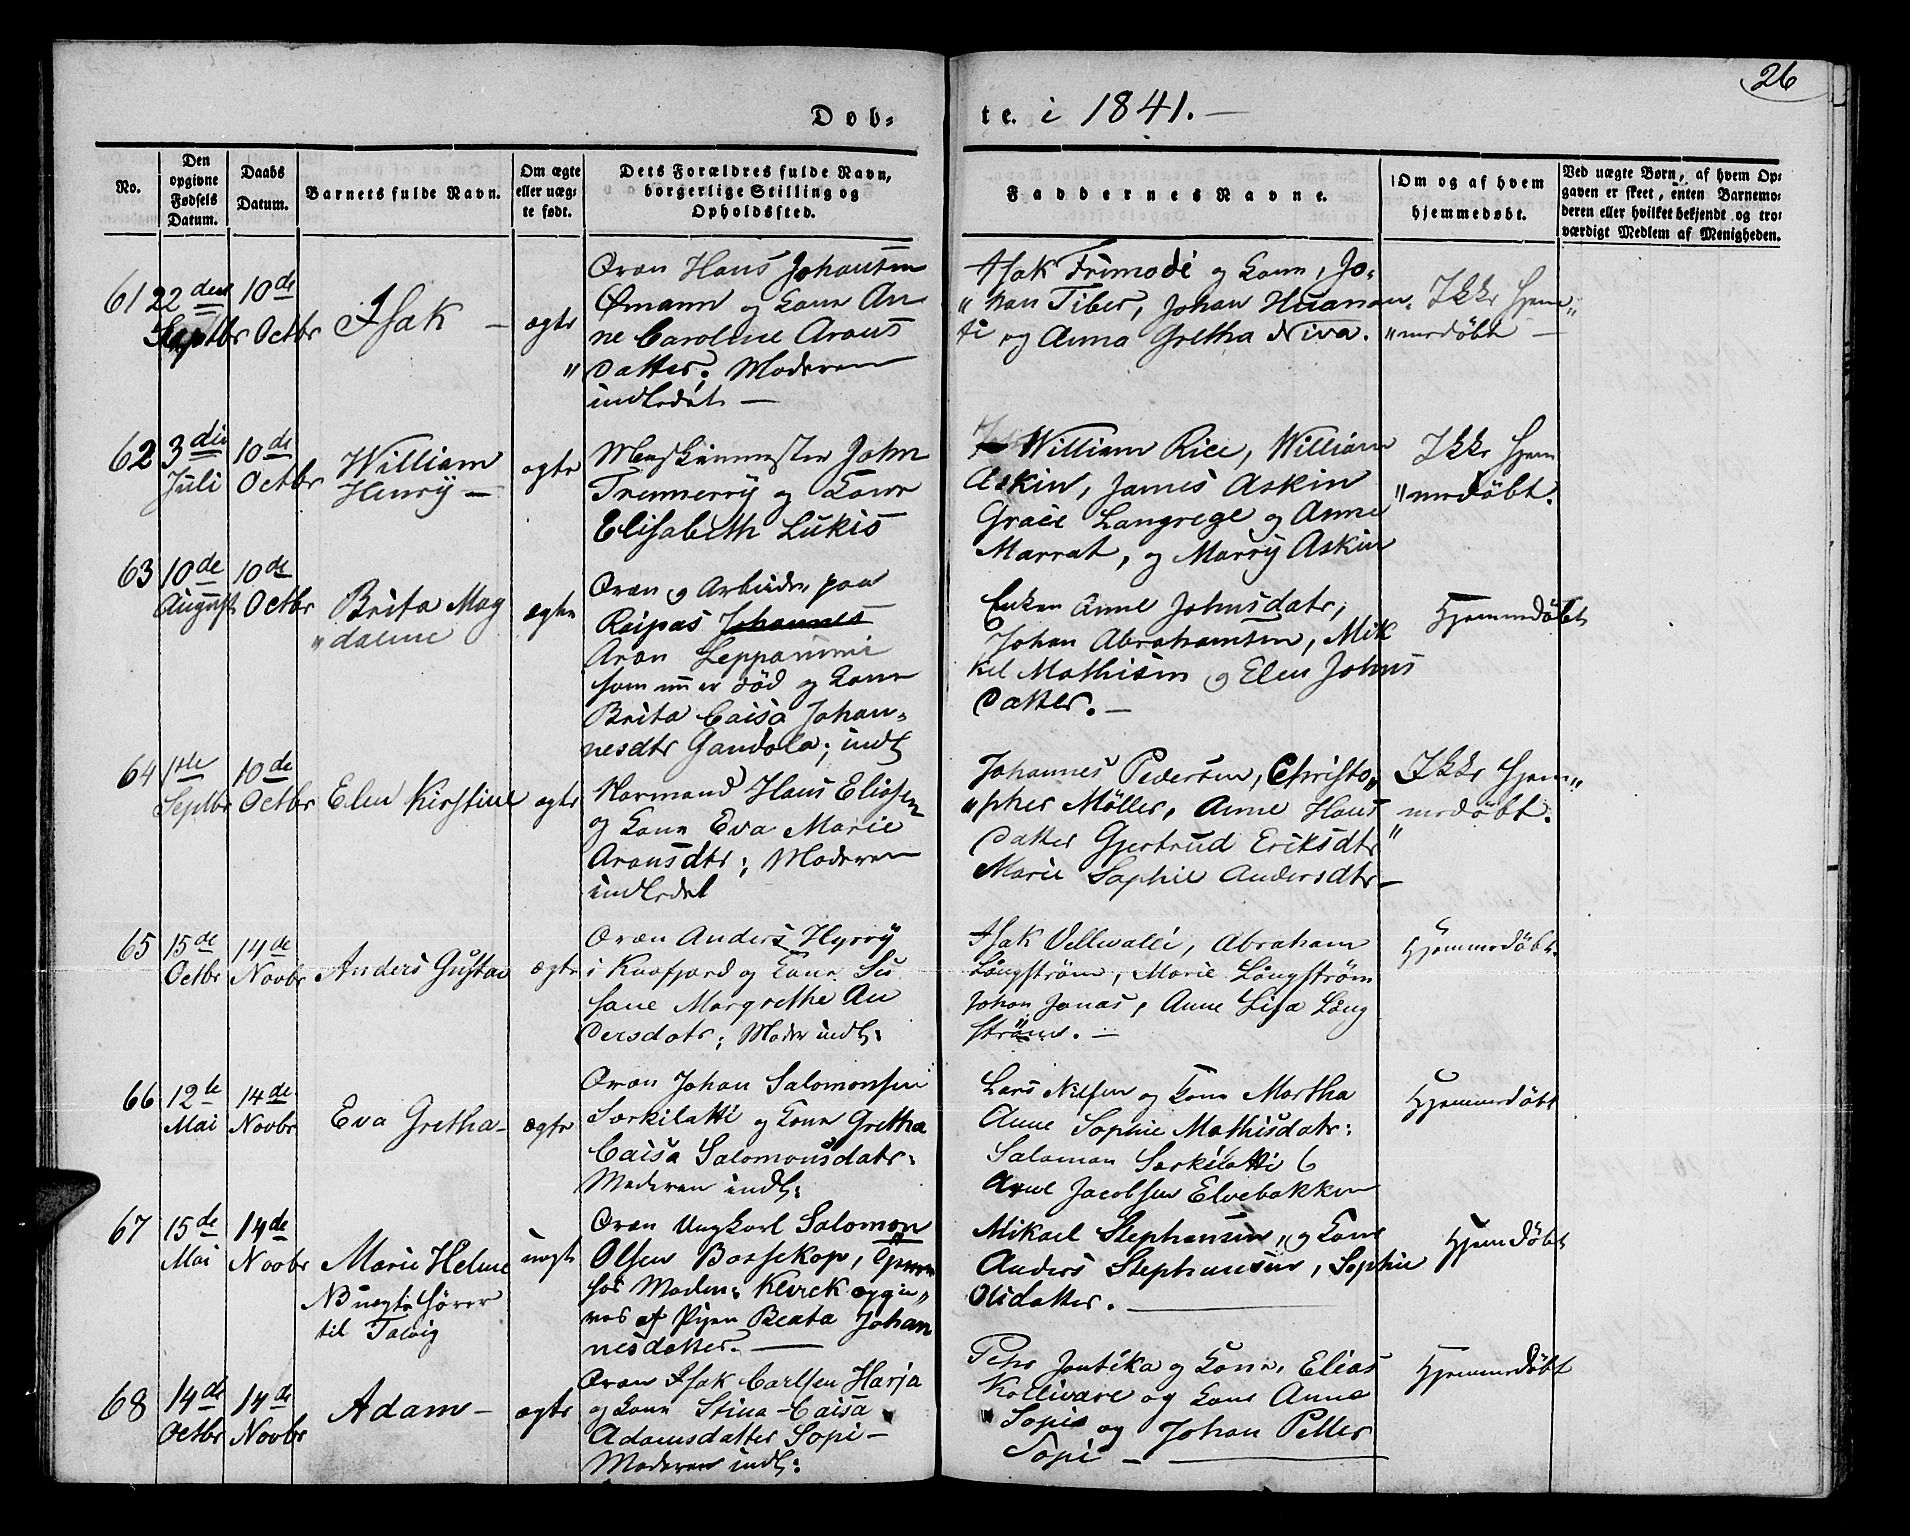 26
Døb-
te. i 1841. -
No.
Den
opgivne
Fødsels
Datum.
Daabs
Datum.
Barnets fulde Navn.
Om ægte
eller uæg-
te født.
Dets Forældres fulde Navn,
borgerlige Stilling og
Opholdssted.
Faddernes Navne.
Om og af hvem
hjemmedøbt.
Ved uægte Børn, af hvem Op-
gaven er skeet, enten Barnemo-
deren eller hvilket bekjendt og tro-
værdigt Medlem af Menigheden.
61
22den
Septbr
10de
Octbr
Isak -
ægte
Qvæn Hans Johansen
Ømann og Kone An
ne Caroline Arons
" datter; Moderen
indledet -
Isak Frimodi og Kone, Jo-
" han Tiber, Johan Huanan-
ti og Anna Gretha Niva.
Ikke Hjem "
" medøbt -
62
3die
Juli
10de
Octbr
William
Henry -
ægte
Maskinmester John
Trennerry og Kone
Elisabeth Lukis
William Rice, William
Askin, James Askin
Gracie Langrege og Anne
Marrat, og Marry Askin
Ikke Hjem
" medøbt.
63
10de
August
10de
Octbr
Brita Mag
" dalene
ægte
Qvæn og Arbeider paa
Raipas Johannes
Aron Leppaniemi
som nu er død og Kone
Brita Caisa Johan-
nesdtr Gandola; indl
Enken Anne Johnsdatr,
Johan Abrahamsen, Mik
kel Mathisen og Elen Johns
datter. -
Hjemmedøbt
64
1ste
Septbr
10de
Octbr
Elen Kirstine
ægte
Normand Hans Eliasen
og Kone Eva Marie
Aronsdtr; Moderen
indledet
Johannes Pedersen, Christo "
" pher Møller, Anne Hans
datter Gjertrud Eriksdtr
Marie Sophie Andersdtr -
Ikke Hjem "
" medøbt.
65
15de
Octbr
14de
Novbr
Anders Gustav
ægte
Qvæn Anders Hyrry
i Kaafjord og Kone Su
sane Margrethe An
dersdatr; Moder indl:
Isak Vellivalli, Abraham
Långström, Marie Långström
Johan Jonas, Anne Lisa Lång
ström. -
Hjemmedøbt.
66
12te
Mai
14de
Novbr
Eva Gretha -
ægte
Qvæn Johan Salomonsen
Særkilatti og Kone Gretha
Caisa Salomonsdatr:
Moderen indl:
Lars Nilsen og Kone Martha
Anne Sophie Mathisdatr:
Salomon Særkilatti
Arne Jacobsen Elvebakken
Hjemmedøbt
67
15de
Mai
14de
Novbr
Marie Helene
NB uægte hører
til Talvig
uægte
Qvæn Ungkarl Salomon
Olsen Bossekop,
hos Kleveck
ves af Pigen Beata Johan
nesdatter. -
Mikael Stephansen, og Kone
Anders Stephansen, Sophie
Olsdatter. -
Hjemdøbt
68
14de
Octbr
14de
Novbr
Adam -
ægte
Qvæn Isak Carlsen Harja
og Kone Stina Caisa
Adamsdatter Sopi -
Moderen indl:
Pehr Jontika og Kone, Elias
Kollivare og Kone Anna
" Sopia og Johan Petter
Sopi -
Hjemmedøbt